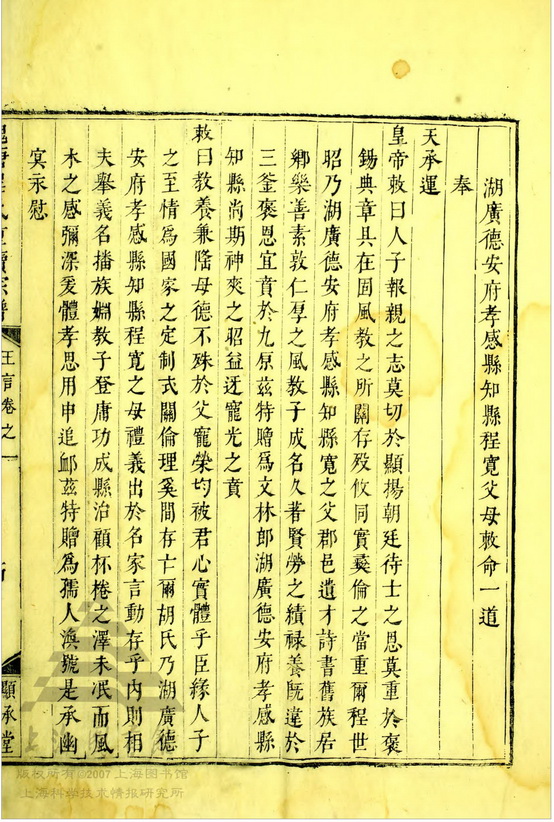 湖廣德安府孝感縣知縣程寬父母敕命一道
奉
天承運
皇帝敕曰人子報親之志莫切於顯揚朝廷待士之恩莫重於褒
錫典章具在固風教之所關存歿攸同實彛倫之當重爾程世
昭乃湖廣德安府孝感縣知縣寬之父郡邑遺才詩書舊族居
鄉樂善素敦仁厚之風教子成名久著賢勞之績禄養既違於
三釜褒恩宜賁於九原茲特贈爲文林郎湖廣德安府孝感縣
知縣尚期神爽之昭益迓寵光之賁
敕曰教養兼隆母德不殊於父寵榮均被君心實體乎臣緣人子
之至情爲國家之定制式關倫理奚間存亡爾胡氏乃湖廣德
安府孝感縣知縣程寬之母禮義出於名家言動存乎内則相
夫舉義名播族婣教子登庸功成縣治顧杯棬之澤未泯而風
木之感彌深爰體孝思用申追卹茲特贈爲孺人渙號是承幽
冥永慰
氏重續宗譜
王言卷之一
顯承堂
版权所有©2007上海图书馆
上海科学技术情报研究所